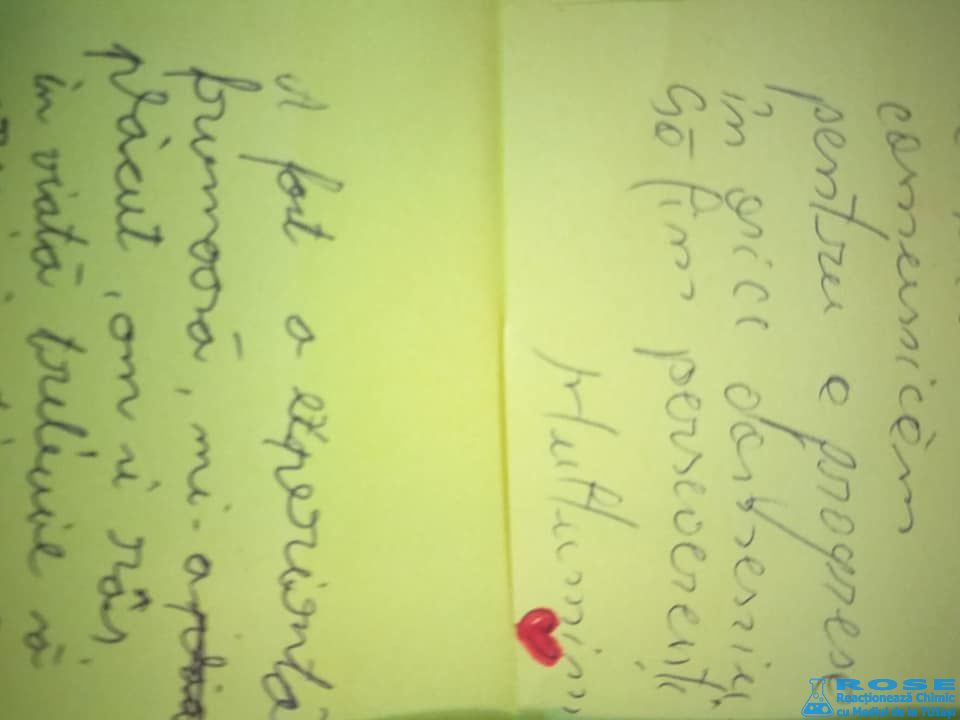 comunicăm
pentru a progresa
în orice domeniu
Să fim perseverenți
Mulțumim
A fost o experiență
frumoasă, mi-a
plăcut, am și râs
în viață trebuie să
ROSE
Reacționează Chimic
cu Mediul de la TUIași